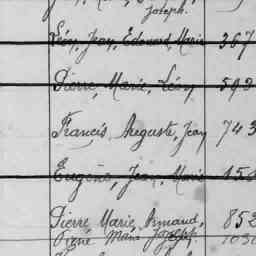 Joseph.
Léon, Jean, Edouard, Marie 367
Pierre, Marie, Léon 592
Francis, Auguste, Jean 743
Eugène, Jean, Marie
Pierre Marie, Armand, 852
René Marie Joseph. 1030